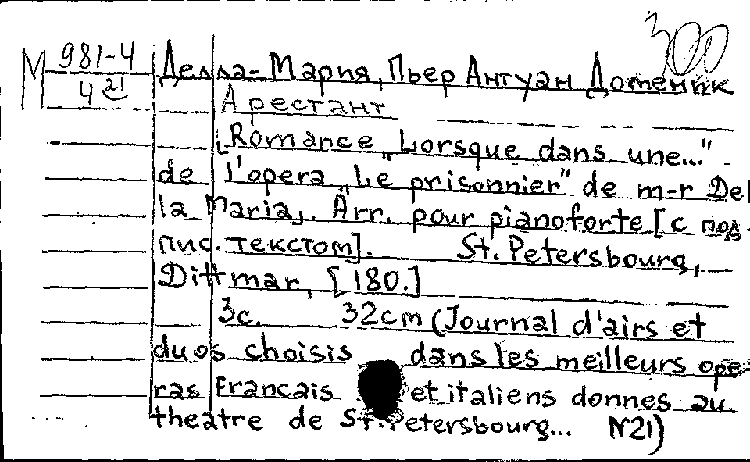 300
М 981-4
4 21
Делла-Мария, Пьер Антуан Доменик
Арестант
[Romance „Lorsque dans une..."
de l'opera „Le prisonnier" de m-r Del
la Maria,. Arr. pour pianoforte [с под-
пис. текстом]. St. Petersbourg,
Dittmar, [180.]
3с. 32cm (Journal d'airs et
duos choisis dans les meilleurs ope-
ras francais et italiens donnes au
theatre de St. Petersbourg... N21)